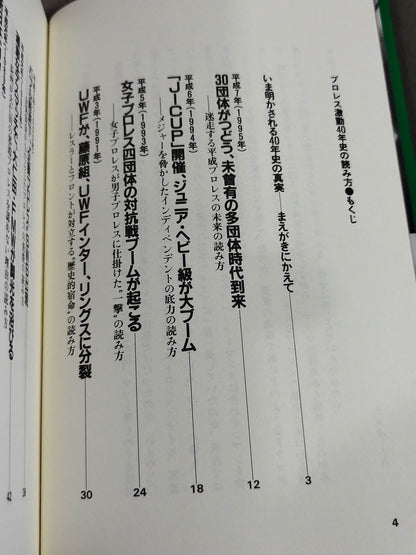 プロレス激動40年史の読み方●もくじ
いま明かされる40年史の真実──まえがきにかえて 3
平成7年(1995年)
30団体がつどう、未曽有の多団体時代到来 12
──迷走する平成プロレスの未来の読み方
平成6年(1994年)
「J-CUP」開催、ジュニア・ヘビー級が大ブーム 18
──メジャーを脅かしたインディペンデントの底力の読み方
平成5年(1993年)
女子プロレス四団体の対抗戦ブームが起こる 24
──女子プロレスが男子プロレスに仕掛けた“一撃”の読み方
平成3年(1991年)
UWFが、藤原組、UWFインター、リングスに分裂 30
──レスラーとフロントが対立する“歴史的宿命”の読み方
38
42
4